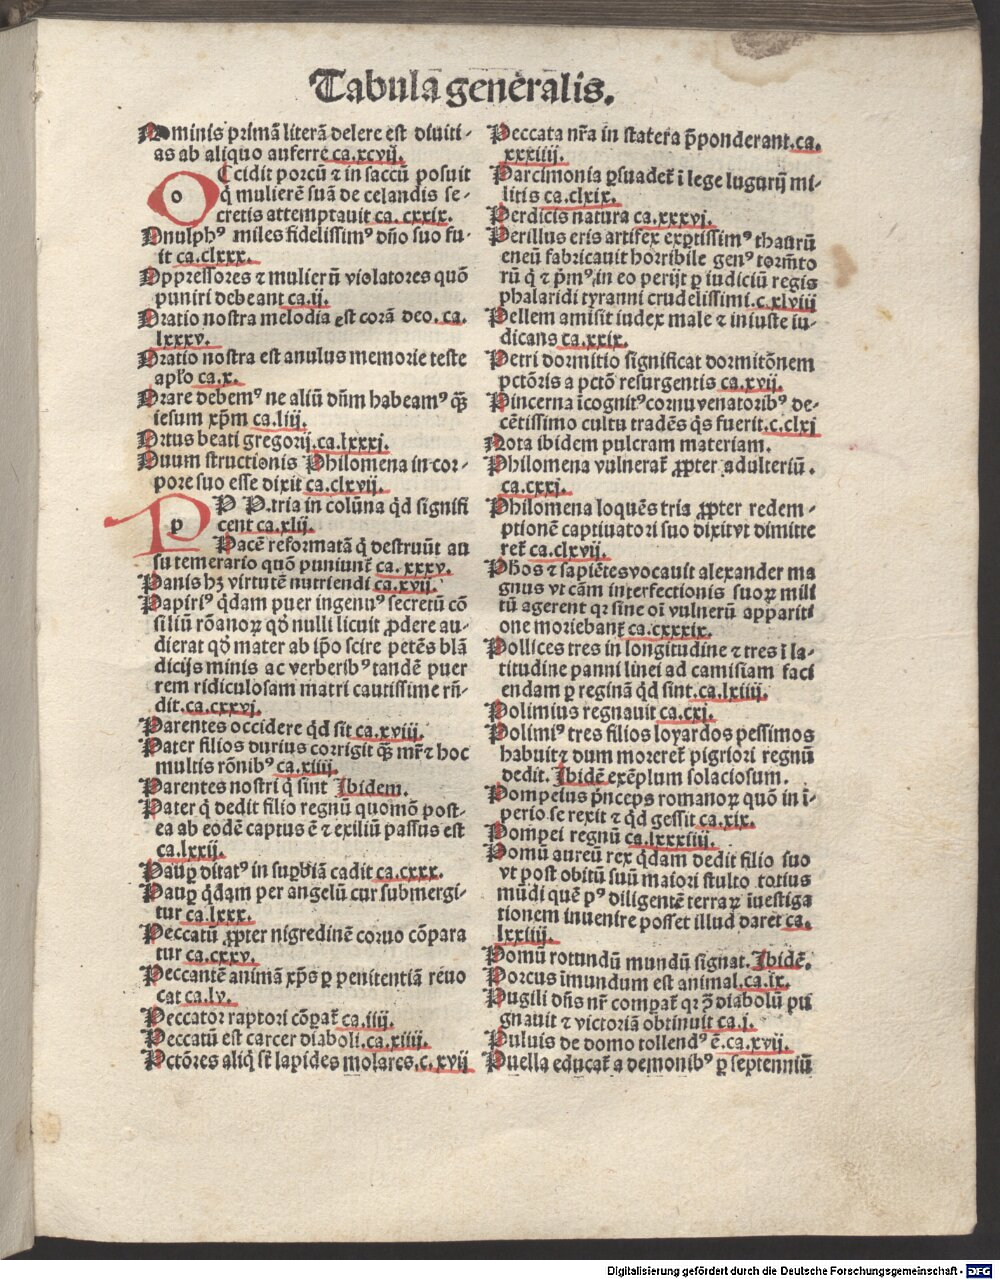 Tabulā generalis.
Nominis primā literā delere est diuiti-
as ab aliquo auferre ca.xcvij.
OCcidit porcū ⁊ in saccū posuit
q̄ mulierē suā de celandis se-
cretis attemptauit ca. cxxix.
Onulphꝰ miles fidelissimꝰ dn̄o suo fu-
it ca.clxxx.
Oppressores ⁊ mulierū violatores quō
puniri debeant ca.ij.
Oratio nostra melodia est corā deo. ca.
lxxxv.
Oratio nostra est anulus memorie teste
apło ca.x.
Orare debemꝰ ne aliū dn̄m habeamꝰ q̄ꝫ
iesum xp̄m ca.liij.
Ortus beati gregorij.ca.lxxxj.
Ouum structionis Philomena in cor-
pore suo esse dixit ca.clxvij.
PP P.tria in colūna qd̄ signifi
cent ca.xlij.
Pacē reformatā q̄ destruūt au
su temerario quō puniunt̄ ca. xxxv.
Panis hꝫ virtutē nutriendi ca.xvij.
Papirꝰ q̄dam puer ingenuꝰ secretū cō
siliū rōanoꝝ qd̄ nulli licuit ꝓdere au-
dierat qd̄ mater ab ip̄o scire petēs blā
dicijs minis ac verberibꝰ tandē puer
rem ridiculosam matri cautissime rn̄-
dit.ca.cxxvj.
Parentes occidere qd̄ sit ca.xviij.
Pater filios durius corrigit q̄ꝫ mr̄ ⁊ hoc
multis rōnibꝰ ca.xiiij.
Parentes nostri q̄ sint Ibidem.
Pater q̄ dedit filio regnū quomō post-
ea ab eodē captus ē ⁊ exiliū passus est
ca.lxxij.
Paupꝑ ditatꝰ in suꝑbiā cadit ca.cxxx.
Pauꝑ q̄dam per angelū cur submergi-
tur ca.lxxx.
Peccatū ꝓpter nigredinē coruo cōpara
tur ca.cxxv.
Peccantē animā xp̄s ꝑ penitentiā reuo
cat ca.lv.
Peccator raptori cōꝑat̄ ca.iiij.
Peccatū est carcer diaboli.ca.xiiij.
Pctōres aliq̄ st̄ lapides molares.c.xvij
Peccata nr̄a in statera p̄ponderant.ca.
xxxiiij.
Parcimonia ꝑsuadet̄ ī lege lugurij mi-
litis ca.clxix.
Perdicis natura ca.xxxvj.
Perillus eris artifex exꝑtissimꝰ thaurū
eneū fabricauit horribile genꝰ torm̄to
rū q̄ ⁊ p̄mꝰ in eo perijt ꝑ iudiciū regis
phalaridi tyranni crudelissimi.c.xlviij
Pellem amisit iudex male ⁊ iniuste iu-
dicans ca.xxix.
Petri dormitio significat dormitōnem
pctōris a pctō resurgentis ca.xvij.
Pincerna īcognitꝰ cornu venatoribꝰ de-
cētissimo cultu tradēs q̄s fuerit.c.clxj
Nota ibidem pulcram materiam.
Philomena vulnerat̄ ꝓpter adulteriū.
ca.cxxj.
Philomena loquēs tria ꝓpter redem-
ptionē captiuatori suo dixit vt dimitte
ret̄ ca.clxvij.
Phos ⁊ sapiētes vocauit alexander ma
gnus vt cām interfectionis suoꝝ mili
tū agerent qꝛ sine oī vulnerū appariti
one moriebant̄ ca.cxxxix.
Pollices tres in longitudine ⁊ tres ī la-
titudine panni linei ad camisiam faci
endam ꝑ reginā qd̄ sint.ca.lxiiij.
Polimius regnauit ca.cxj.
Polimiꝰ tres filios loyardos pessimos
habuit ⁊ dum moreret̄ pigriori regnū
dedit. Ibidē exēplum solaciosum.
Pompeius p̄nceps romanoꝝ quō in ī-
perio se rexit ⁊ qd̄ gessit ca.xix.
Pompei regnū ca.lxxxiiij.
Pomū aureū rex q̄dam dedit filio suo
vt post obitū suū maiori stulto totius
mūdi quē pꝰ diligentē terraꝝ īuestiga
tionem inuenire posset illud daret ca.
lxxiiij.
Pomū rotundū mundū signat. Ibidē.
Porcus īmundum est animal.ca.ix.
Pugili dn̄s nr̄ comꝑat̄ qꝛ ꝯ diabolū pu
gnauit ⁊ victoriā obtinuit ca.j.
Puluis de domo tollendꝰ ē.ca.xvij.
Puella educat̄ a demonibꝰ ꝑ septenniū
Digitalisierung gefördert durch die Deutsche Forschungsgemeinschaft - DFG